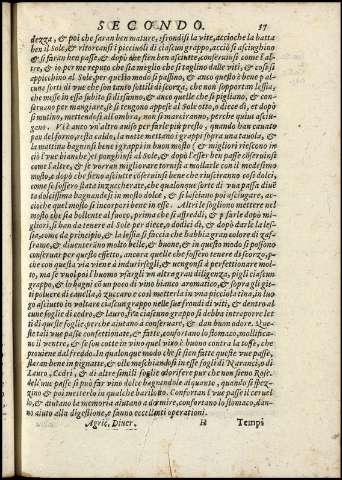 SECONDO. 57
dezza, & poi che saran ben mature, sfrondisi la vite, accioche la batta
ben il Sole, & ritorcansi i picciuoli di ciascun grappo, acciò si asciughino
& si faran ben passe, & dopò che sien ben asciutte, conseruinsi come l'al
tre, & io per me reputo che sia meglio che si taglino dalle viti; & così si
appicchino al Sole, per questo modo si passino, & anco questo è bene p al
cune sorti di vue che son tanto sottili di scorza, che non sopportan lessia,
che messe in essa subito si disfanno, & anco quelle che si pigliano, & con
seruano per mangiare, se si tengono appese al Sole otto, ò diece dì, et dopò
si mutino, mettendosi all'ombra, non si marciranno, perche quiui asciu
gono. V'è anco vn'altro auiso per farle più presto, quando han cauato
pan del forno, resta caldo, la notte mettano i grappi sopra una tauola, &
la mattina bagninsi bene i grappi in buon mosto (& migliori riescono in
ciò l'vue bianche) et ponghinsi al Sole, & dopò l'esser ben passe cōseruinsi
come l'altre, & se vorran migliorare tornisi a mollarle con il medesimo
mosto, e dopò che sieno asciutte cōserinsi bene che riusciranno così dolci,
come se fossero state inzuccherate, che qualonque sorte di vua passa diuē
ta dolcissima bagnandosi in mosto dolce, & si lasciano poi asciugare, ac-
cioche quel mosto si incorpori bene in esse. Altri le sogliono mettere nel
mosto che sia bollente al fuoco, prima che si affreddi, & p farle dopò mi-
gliori, si han da tenere al Sole per diece, o dodici dì, & dopò darle la les-
sia, come da principio, & la lessia si faccia che habbia gran colore di zaf
frano, & diueneranno molto belle, & buone, & in questo modo si possono
conseruar per questo effetto, ancora quelle che fossero tenere di scorzo, p-
che con questa via viene à indurirsegli, & vengono à perfettione mol-
to, ma se vuol poi l'huomo vsargli vn'altra gran diligenza, pigli ciascun
grappo, & lo bagni cō un poco di vino bianco aromatico, & sopra gli git-
ti poluere di canella, ò zuccaro e così mettisi in vna picciola tina, in luo
go asciutto in voltare ciascun grappo nelle sue frondi di viti, & dentro al
cune foglie di cedro, & lauro, si cia ciascun grappo si debba intraporre let
ti di queste foglie, perche aiutano a conseruare, & dan buon odore. Que
ste tali vue passe confettionate, & fatte, confortano lo stomaco, mollifica-
no il ventre, & se son cotte in vino quel vino è buono contra la tosse, che
prouiene dal freddo. In qualonque modo che si sien fatte queste vue passe,
staran bene in pignatte, & olle meschiandosi in esse fogli di Naranci, o di
Lauro, Cedri, & di altre simili foglie odorifere pur che non sieno Rose.
dell'uue passe si può far vino dolce bagnandole alquanto, quando si spez-
zino & poi metterlo in qualche bariletto. Confortan l'vue passe il ceruel
lo, & aiutano la memoria aiutano a dormire, confortano lo stomaco, dan-
no aiuto alla digestione, e fanno eccellenti operationi.
Agric. Diuer. H Tempi